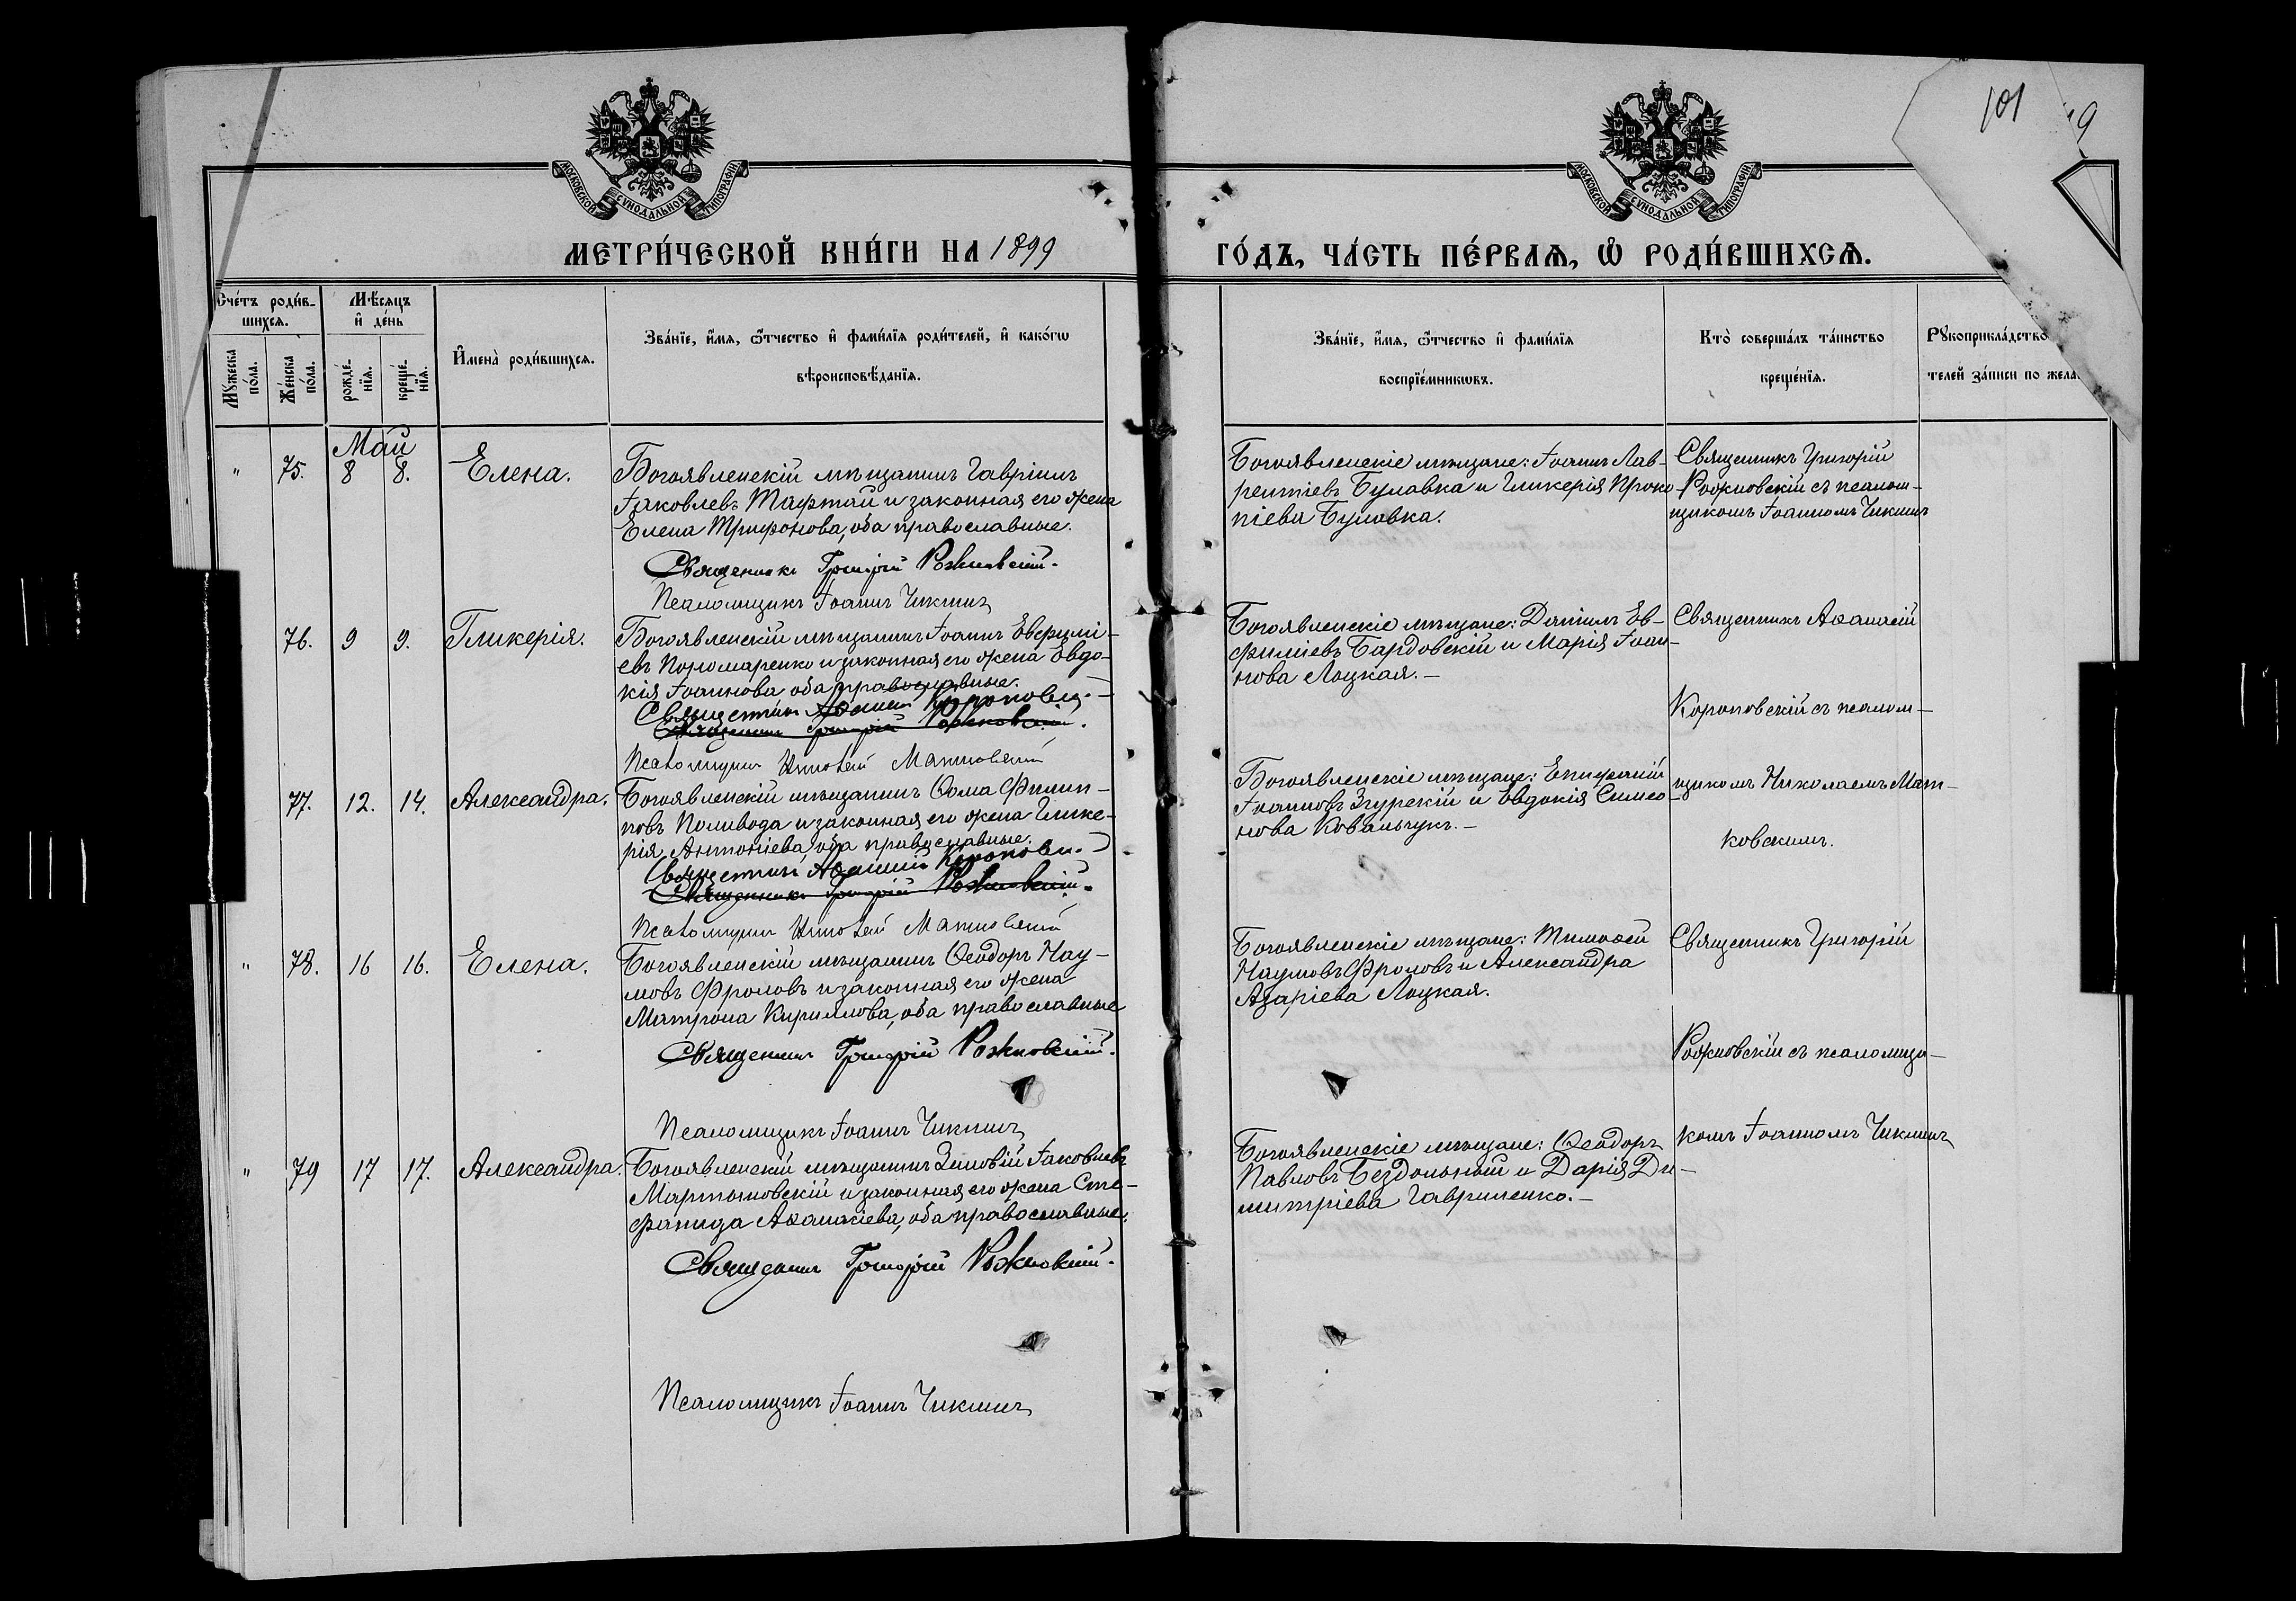 101
19
МОСКОВСКОЙ СУНОДАЛЬНОЙ ТИПОГРАФІИ
МОСКОВСКОЙ СУНОДАЛЬНОЙ ТИПОГРАФІИ
МЕТРИ́ЧЕСКОЙ КНИ́ГИ НА 1899
ГО́ДЪ, ЧА́СТЬ ПЕ́РВАѦ, Ѡ РОДИ́ВШИХСѦ.
Сче́тъ роди́в-
шихсѧ.
Мꙋ́жеска по́ла.
Же́нска по́ла.
Мѣ́сѧцъ
и҆ де́нь
рожде́-
нїѧ.
креще́-
нїѧ.
И҆мена̀ роди́вшихсѧ.
Зва́нїе, и҆́мѧ, ѻ҆́тчество и҆ фами́лїѧ роди́телей, и҆ како́гѡ
вѣроисповѣ́данїѧ.
Зва́нїе, и҆́мѧ, ѻ҆́тчество и҆ фами́лїѧ
воспрїе́мникѡвъ.
Кто̀ соверша́лъ та́инство
креще́нїѧ.
Рꙋкоприкла́дство
телей за́писи по жела
Май
" 75. 8 8. Елена.
Богоявленскій мѣщанинъ Гавріилъ
Іаковлевъ Тафтай и законная его жена
Елена Трифонова, оба православные.
Священникъ Григорій Рожновскій.
Псаломщикъ Іоаннъ Чикшинъ
Богоявленскіе мѣщане: Іоаннъ Лав-
рентіевъ Булавка и Гликерія Проко-
піева Булавка.
Священникъ Григорій
Рожновскій съ псалом-
щикомъ Іоанномъ Чикшин
76. 9 9. Гликерія.
Богоявленскій мѣщанинъ Іоаннъ Евфимі-
евъ Пономаренко и законная его жена Евдо-
кія Іоаннова оба православные.
Священникъ Аѳанасій Короповскій
Священникъ Григорій Рожновскій.
Псаломщикъ Николай Матковскій
Богоявленскіе мѣщане: Даніилъ Ев-
фиміевъ Бардовскій и Марія Іоан-
нова Лоцкая.
Священникъ Аѳанасій
Короповскій съ псалом-
77. 12. 14. Александра.
Богоявленскій мѣщанинъ Ѳома Филип-
повъ Поливода и законная его жена Глике-
рія Антоніева, оба православные.
Священникъ Аѳанасій Короповскій
Священникъ Григорій Рожновскій.
Псаломщикъ Николай Матковскій
Богоявленскіе мѣщане: Епифаній
Іоанновъ Згурскій и Евдокія Симео-
нова Ковальчукъ.
щикомъ Николаемъ Мат-
ковскимъ.
" 78. 16 16. Елена.
Богоявленскій мѣщанинъ Ѳеодоръ Нау-
мовъ Фроловъ и законная его жена
Матрона Кириллова, оба православные
Священникъ Григорій Рожновскій.
Псаломщикъ Іоаннъ Чикшинъ
Богоявленскіе мѣщане: Тимоѳей
Наумовъ Фроловъ и Александра
Азаріева Лоцкая.
Священникъ Григорій
Рожновскій съ псаломщи-
комъ Іоанномъ Чикшинъ
" 79 17 17. Александра.
Богоявленскій мѣщанинъ Зиновій Іаковлевъ
Мартыновскій и законная его жена Сте-
фанида Аѳанасіева, оба православные.
Священникъ Григорій Рожновскій.
Псаломщикъ Іоаннъ Чикшинъ
Богоявленскіе мѣщане: Ѳеодоръ
Павловъ Бездольный и Дарія Ди-
митріева Гавриленко.